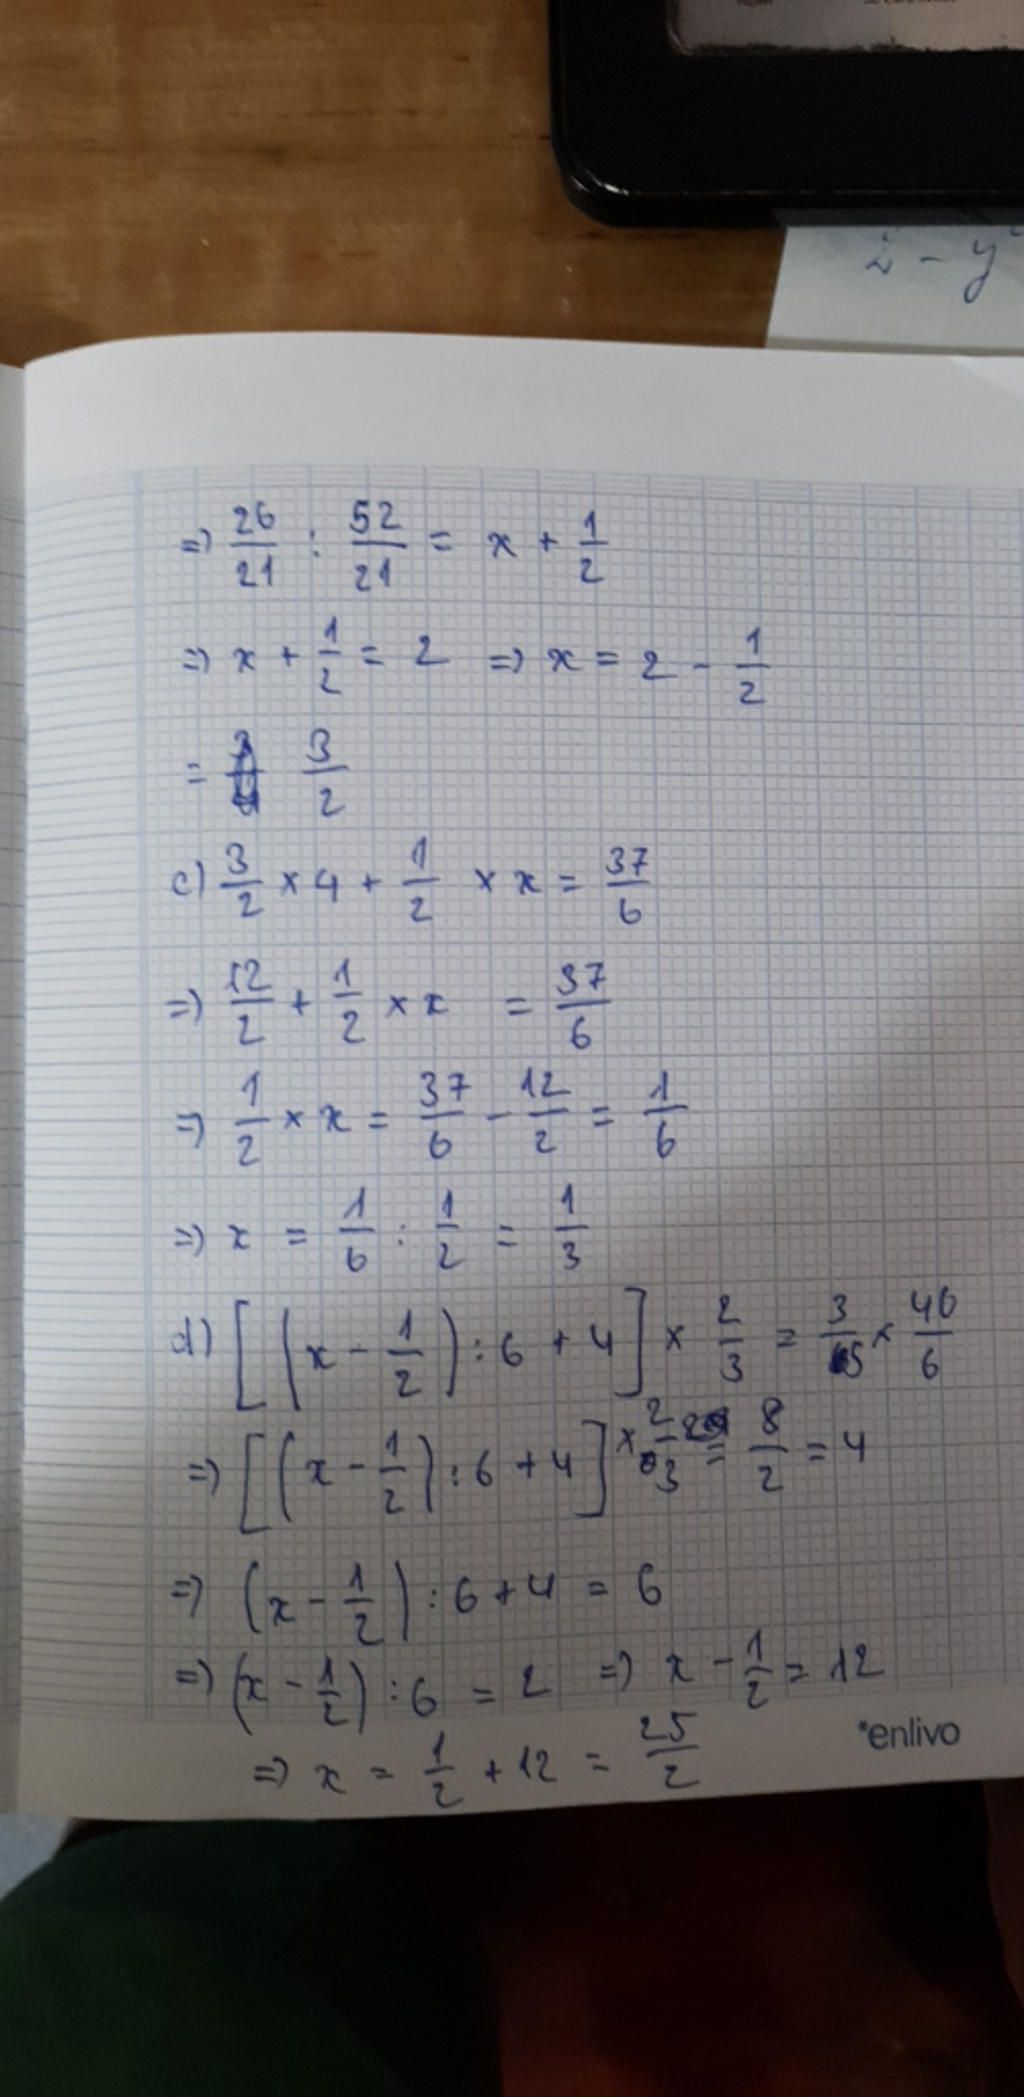 z - y
=> 26/21 : 52/21 = x + 1/2
=> x + 1/2 = 2 => x = 2 - 1/2
= 3/2
c) 3/2 × 4 + 1/2 × x = 37/6
=> 12/2 + 1/2 × x = 37/6
=> 1/2 × x = 37/6 - 12/2 = 1/6
=> x = 1/6 : 1/2 = 1/3
d) [(x - 1/2) : 6 + 4] × 2/3 = 3/5 × 40/6
=> [(x - 1/2) : 6 + 4] × 2/3 = 8/2 = 4
=> (x - 1/2) : 6 + 4 = 6
=> (x - 1/2) : 6 = 2 => x - 1/2 = 12
*enlivo
=> x = 1/2 + 12 = 25/2